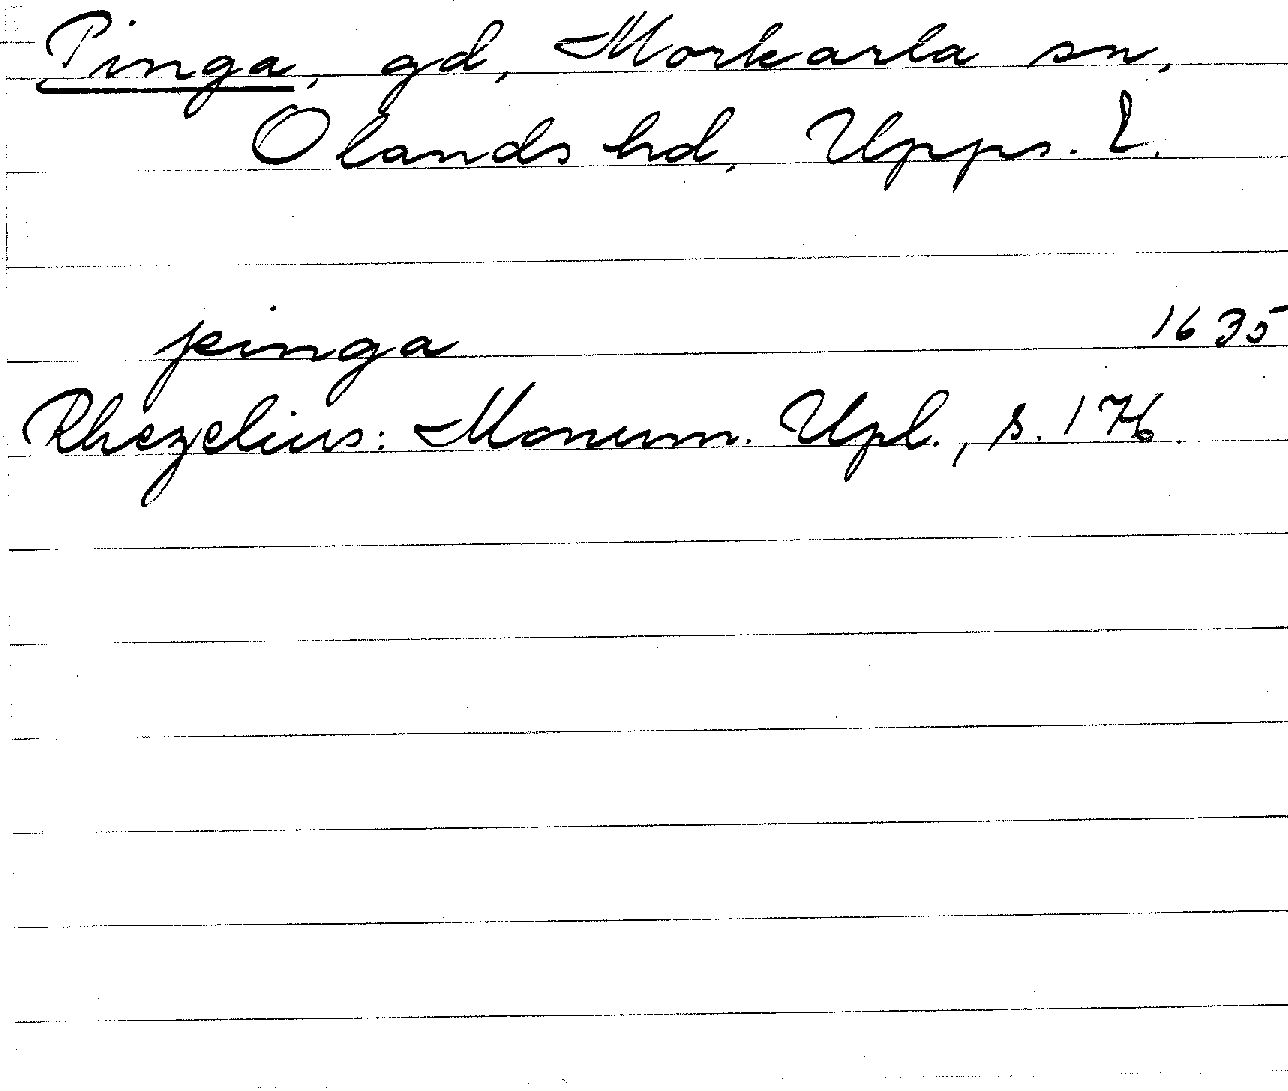 Pinga, gd, Morkarla sn,
Olands hd, Upps. l.
pinga 1635
Rhezelius: Monum. Upl., s. 176.